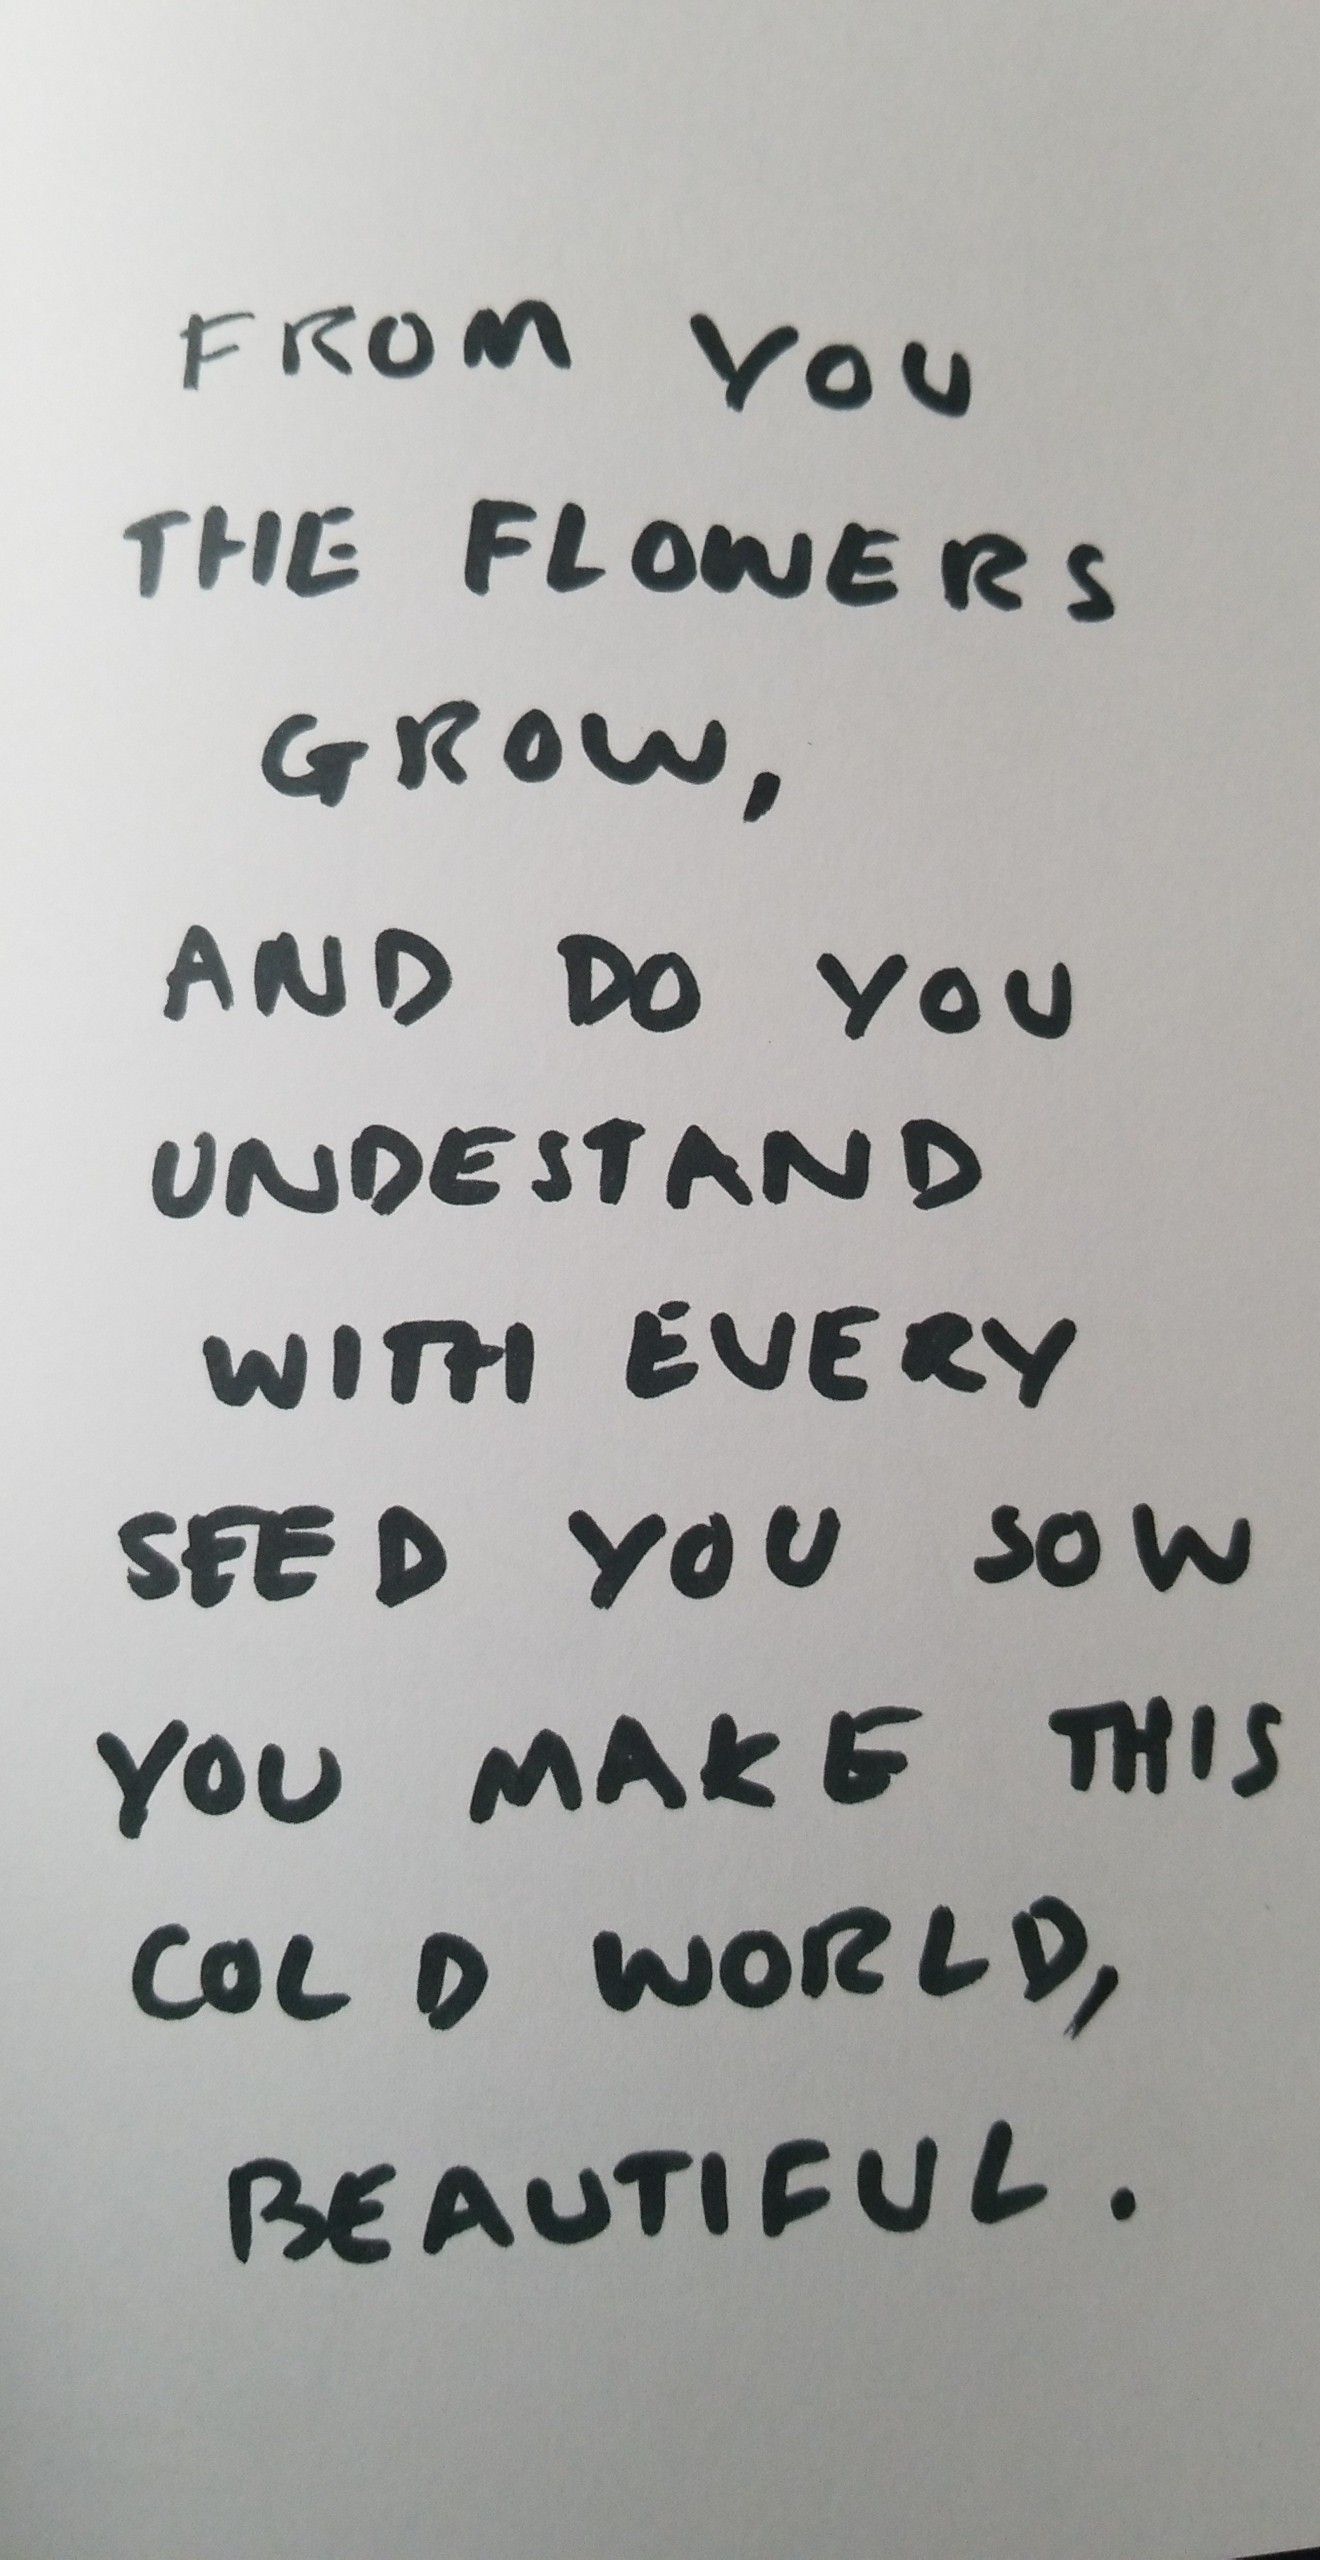 FROM YOU
THE FLOWERS
GROW,
AND DO YOU
UNDESTAND
WITH EVERY
SEED YOU SOW
YOU MAKE THIS
COLD WORLD,
BEAUTIFUL.